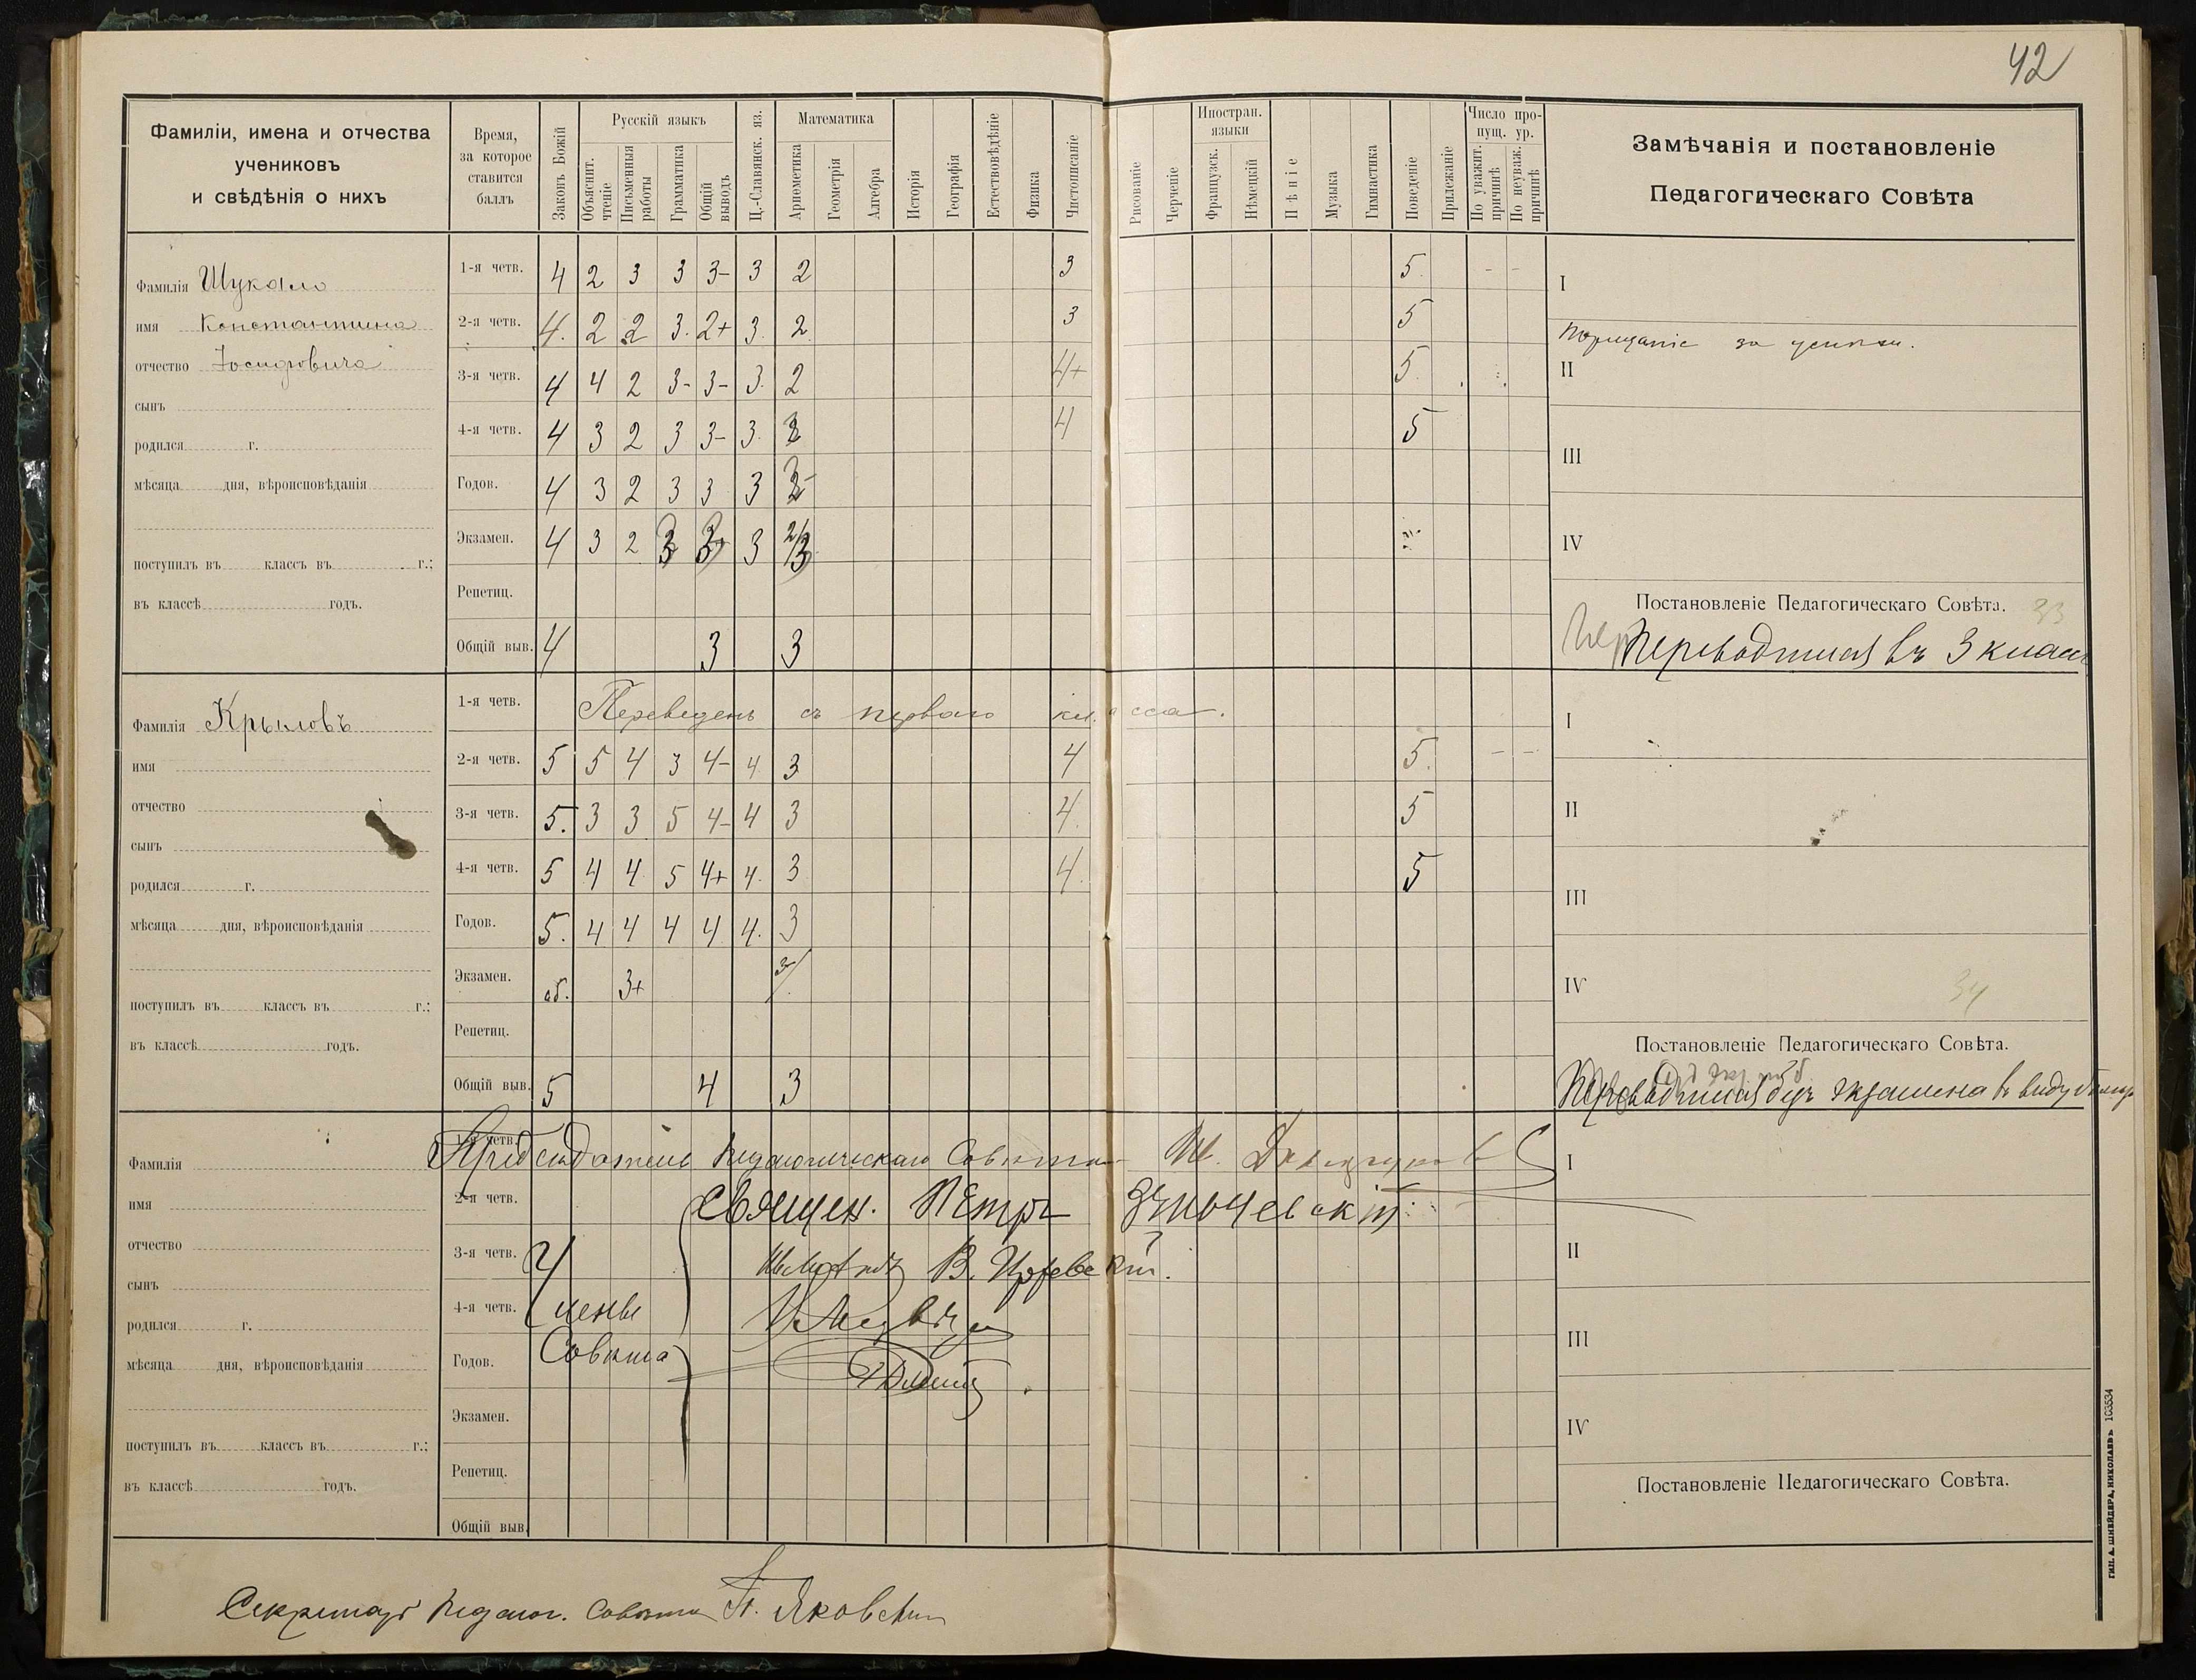 42
Фамиліи, имена и отчества
учениковъ
и свѣдѣнія о нихъ
Время,
за которое
ставится
баллъ
Законъ Божій
Русскій языкъ
Объяснит. чтеніе
Письменныя работы
Грамматика
Общій выводъ
Ц.-Славянск. яз.
Математика
Ариѳметика
Геометрія
Алгебра
Исторія
Географія
Естествовѣдѣніе
Физика
Чистописаніе
Рисованіе
Черченіе
Иностран. языки
Французск.
Нѣмецкій
Пѣніе
Музыка
Гимнастика
Поведеніе
Прилежаніе
Число пропущ. ур.
По уважит. причинѣ
По неуваж. причинѣ
Замѣчанія и постановленіе
Педагогическаго Совѣта
Фамилія Шукало
имя Константина
отчество Іосифовича
сынъ
родился г.
мѣсяца дня, вѣроисповѣданія
поступилъ въ классъ въ г.;
въ классѣ годъ.
1-я четв. 4 2 3 3 3- 3 2 3 5. - -
2-я четв. 4. 2 2 3. 2+ 3. 2 3 5
3-я четв. 4 4 2 3- 3- 3. 2 4+ 5.
4-я четв. 4 3 2 3 3- 3. 4 5
Годов. 4 3 2 3 3 3
Экзамен. 4 3 2 3 3+ 3 2/3
Репетиц.
Общій выв. 4 3 3
I
Порицаніе за успѣхи.
II
III
IV
Постановленіе Педагогическаго Совѣта. 33
Переводится въ 3 классъ
Фамилія Крыловъ
имя
отчество
сынъ
родился г.
мѣсяца дня, вѣроисповѣданія
поступилъ въ классъ въ г.;
въ классѣ годъ.
1-я четв. Переведенъ съ перваго класса.
2-я четв. 5 5 4 3 4- 4 3 4 5. - -
3-я четв. 5. 3 3 5 4- 4 3 4. 5
4-я четв. 5 4 4 5 4+ 4. 3 4. 5
Годов. 5. 4 4 4 4 4. 3
Экзамен. об. 3+
Репетиц.
Общій выв. 5 4 3
I
II
III
IV
34
Постановленіе Педагогическаго Совѣта.
Переводится безъ экзамена въ виду
Фамилія
имя
отчество
сынъ
родился г.
мѣсяца дня, вѣроисповѣданія
поступилъ въ классъ въ г.;
въ классѣ годъ.
1-я четв.
Предсѣдатель Педагогическаго Совѣта
2-я четв.
Священ. Петръ
3-я четв.
4-я четв.
Члены
Совѣта
Годов.
Экзамен.
Репетиц.
Общій выв.
I
II
III
IV
Постановленіе Педагогическаго Совѣта.
Секретарь Педагог. Совѣта
ТИП. А. ШНЕЙДЕРА, НИКОЛАЕВЪ 103534